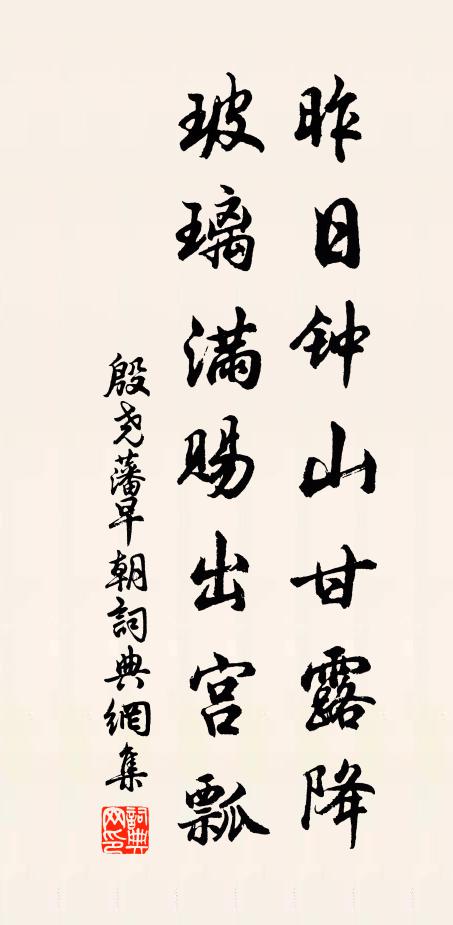 昨日钟山甘露降
玻璃满赐出宫瓢
殷尧藩早朝詞典網集
詞典网印